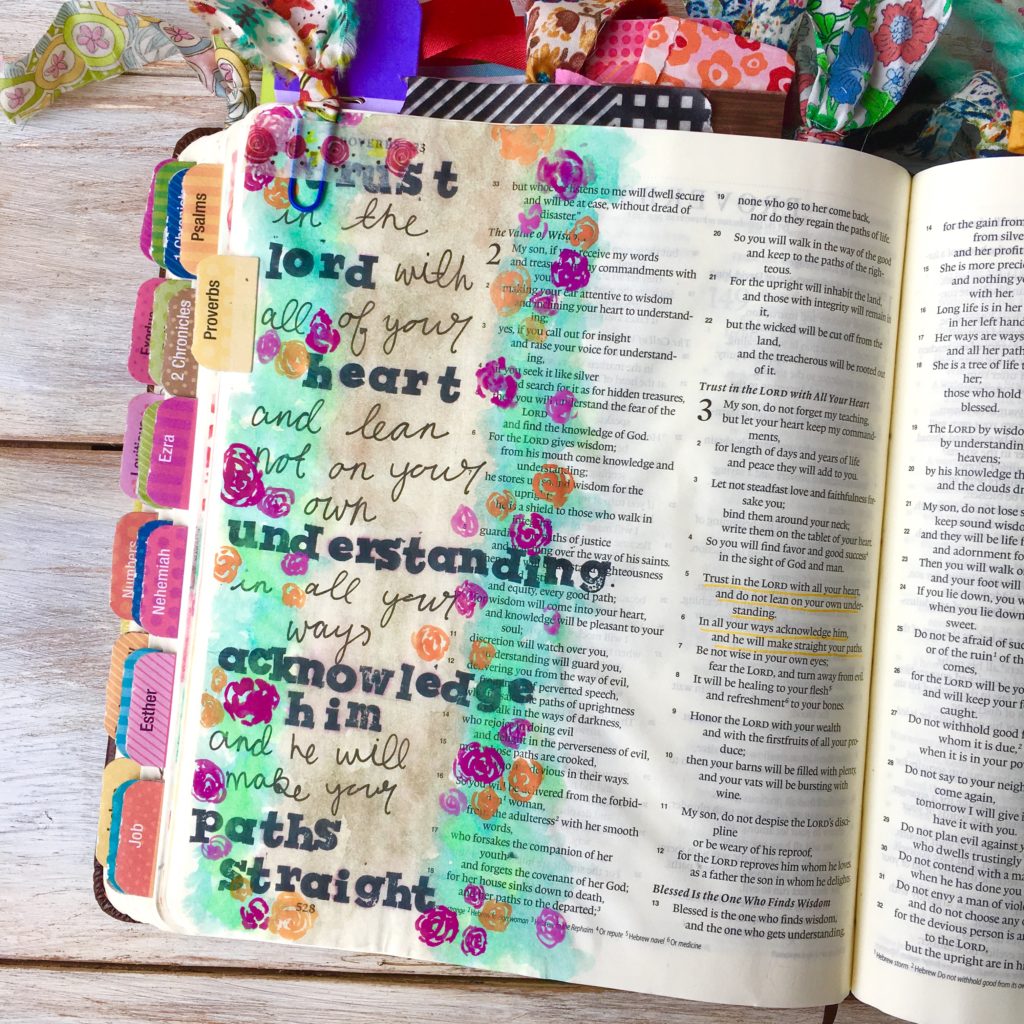 Psalms
1 Chronicles
Proverbs
Exodus
2 Chronicles
Leviticus
Ezra
Numbers
Nehemiah
Esther
Job
PROVERBS
trust
in the
lord with
all of your
heart
and lean
not on your
own
understanding
in all your
ways
acknowledge
him
and he will
make your
paths
straight
528
33 but whoever listens to me will dwell secure
and will be at ease, without dread of
disaster."
The Value of Wisdom
2 My son, if you receive my words
and treasure my commandments with
you,
making your ear attentive to wisdom
and inclining your heart to understand-
ing;
3 yes, if you call out for insight
and raise your voice for understand-
ing,
if you seek it like silver
and search for it as for hidden treasures,
then you will understand the fear of the
LORD
and find the knowledge of God.
6 For the LORD gives wisdom;
from his mouth come knowledge and
understanding;
he stores up sound wisdom for the
upright;
he is a shield to those who walk in
guarding the paths of justice
and watching over the way of his saints.
righteousness
and equity, every good path;
for wisdom will come into your heart,
and knowledge will be pleasant to your
soul;
11 discretion will watch over you,
understanding will guard you,
12 delivering you from the way of evil,
from men of perverted speech,
who forsake the paths of uprightness
to walk in the ways of darkness,
who rejoice in doing evil
and delight in the perverseness of evil,
15 men whose paths are crooked,
and who are devious in their ways.
16 So you will be delivered from the forbid-
den woman,
from the adulteress² with her smooth
words,
17 who forsakes the companion of her
youth
and forgets the covenant of her God;
for her house sinks down to death,
and her paths to the departed;³
19 none who go to her come back,
nor do they regain the paths of life.
20 So you will walk in the way of the good
and keep to the paths of the righ-
teous.
21 For the upright will inhabit the land,
and those with integrity will remain in
it,
22 but the wicked will be cut off from the
land,
and the treacherous will be rooted out
of it.
Trust in the LORD with All Your Heart
3 My son, do not forget my teaching,
but let your heart keep my command-
ments,
2 for length of days and years of life
and peace they will add to you.
3 Let not steadfast love and faithfulness for-
sake you;
bind them around your neck;
write them on the tablet of your heart.
4 So you will find favor and good success⁴
in the sight of God and man.
5 Trust in the LORD with all your heart,
and do not lean on your own under-
standing.
6 In all your ways acknowledge him,
and he will make straight your paths.
7 Be not wise in your own eyes;
fear the LORD, and turn away from evil.
8 It will be healing to your flesh⁵
and refreshment⁶ to your bones.
9 Honor the LORD with your wealth
and with the firstfruits of all your pro-
duce;
10 then your barns will be filled with plenty,
and your vats will be bursting with
wine.
11 My son, do not despise the LORD's disci-
pline
or be weary of his reproof,
12 for the LORD reproves him whom he loves,
as a father the son in whom he delights.
Blessed Is the One Who Finds Wisdom
13 Blessed is the one who finds wisdom,
and the one who gets understanding,
woman
Rephaim 4 Or repute 5 Hebrew navel 6 Or medicine
14 for the gain from
from silver
and her profit
15 She is more precious
and nothing you
with her.
16 Long life is in her
in her left hand
17 Her ways are ways
and all her paths
18 She is a tree of life t
her;
those who hold
blessed.
19 The LORD by wisdom
by understanding
heavens;
20 by his knowledge the
and the clouds dr
21 My son, do not lose s
keep sound wisdom
22 and they will be life f
and adornment for
23 Then you will walk o
and your foot will
24 If you lie down, you w
when you lie down
sweet.
25 Do not be afraid of sud
or of the ruin¹ of the
comes,
26 for the LORD will be you
and will keep your f
caught.
27 Do not withhold good f
whom it is due,²
when it is in your po
28 Do not say to your neigh
come again,
tomorrow I will give i
have it with you.
29 Do not plan evil against y
who dwells trustingly
30 Do not contend with a ma
when he has done you
31 Do not envy a man of viole
and do not choose any o
32 for the devious person is an
to the LORD,
but the upright are in his
1 Hebrew storm 2 Hebrew Do not withhold good from its ow